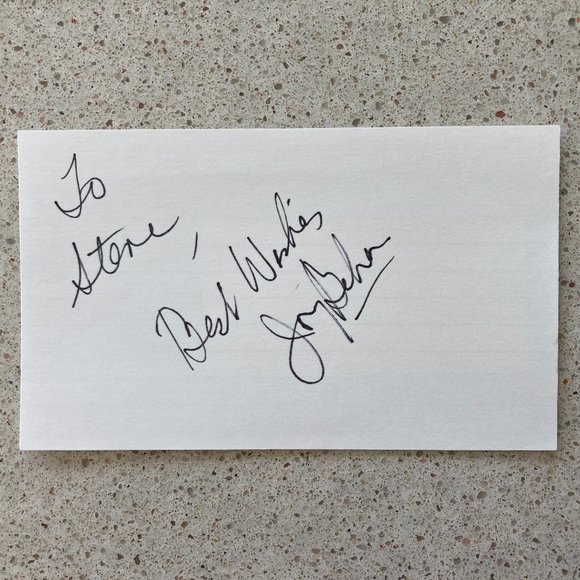 To
Steve,
Best Wishes
Joy Behar